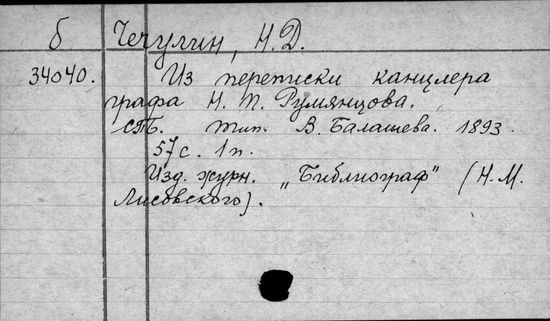 б Чечулин, Н.Д.
34040. Из переписки канцлера
графа Н. П. Румянцова.
СПб. тип. В. Балашева. 1893.
57 с. 1 п.
Изд. журн. „Библиограф" (Н. М.
Лисовского).